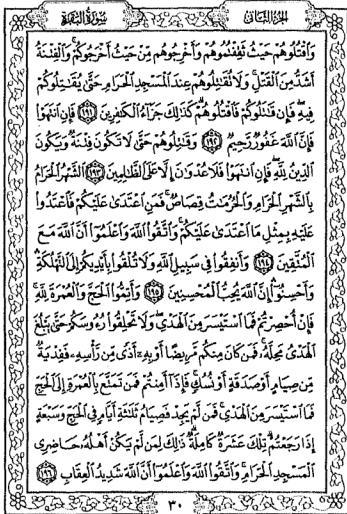 الجزء الثاني سورة البقرة
وَٱقۡتُلُوهُمۡ حَيۡثُ ثَقِفۡتُمُوهُمۡ وَأَخۡرِجُوهُم مِّنۡ حَيۡثُ أَخۡرَجُوكُمۡۚ وَٱلۡفِتۡنَةُ
أَشَدُّ مِنَ ٱلۡقَتۡلِۚ وَلَا تُقَٰتِلُوهُمۡ عِندَ ٱلۡمَسۡجِدِ ٱلۡحَرَامِ حَتَّىٰ يُقَٰتِلُوكُمۡ
فِيهِۖ فَإِن قَٰتَلُوكُمۡ فَٱقۡتُلُوهُمۡۗ كَذَٰلِكَ جَزَآءُ ٱلۡكَٰفِرِينَ ١٩١ فَإِنِ ٱنتَهَوۡاْ
فَإِنَّ ٱللَّهَ غَفُورٞ رَّحِيمٞ ١٩٢ وَقَٰتِلُوهُمۡ حَتَّىٰ لَا تَكُونَ فِتۡنَةٞ وَيَكُونَ
ٱلدِّينُ لِلَّهِۖ فَإِنِ ٱنتَهَوۡاْ فَلَا عُدۡوَٰنَ إِلَّا عَلَى ٱلظَّٰلِمِينَ ١٩٣ ٱلشَّهۡرُ ٱلۡحَرَامُ
بِٱلشَّهۡرِ ٱلۡحَرَامِ وَٱلۡحُرُمَٰتُ قِصَاصٞۚ فَمَنِ ٱعۡتَدَىٰ عَلَيۡكُمۡ فَٱعۡتَدُواْ
عَلَيۡهِ بِمِثۡلِ مَا ٱعۡتَدَىٰ عَلَيۡكُمۡۚ وَٱتَّقُواْ ٱللَّهَ وَٱعۡلَمُوٓاْ أَنَّ ٱللَّهَ مَعَ
ٱلۡمُتَّقِينَ ١٩٤ وَأَنفِقُواْ فِي سَبِيلِ ٱللَّهِ وَلَا تُلۡقُواْ بِأَيۡدِيكُمۡ إِلَى ٱلتَّهۡلُكَةِ
وَأَحۡسِنُوٓاْۚ إِنَّ ٱللَّهَ يُحِبُّ ٱلۡمُحۡسِنِينَ ١٩٥ وَأَتِمُّواْ ٱلۡحَجَّ وَٱلۡعُمۡرَةَ لِلَّهِۚ
فَإِنۡ أُحۡصِرۡتُمۡ فَمَا ٱسۡتَيۡسَرَ مِنَ ٱلۡهَدۡيِۖ وَلَا تَحۡلِقُواْ رُءُوسَكُمۡ حَتَّىٰ يَبۡلُغَ
ٱلۡهَدۡيُ مَحِلَّهُۥۚ فَمَن كَانَ مِنكُم مَّرِيضًا أَوۡ بِهِۦٓ أَذٗى مِّن رَّأۡسِهِۦ فَفِدۡيَةٞ
مِّن صِيَامٍ أَوۡ صَدَقَةٍ أَوۡ نُسُكٖۚ فَإِذَآ أَمِنتُمۡ فَمَن تَمَتَّعَ بِٱلۡعُمۡرَةِ إِلَى ٱلۡحَجِّ
فَمَا ٱسۡتَيۡسَرَ مِنَ ٱلۡهَدۡيِۚ فَمَن لَّمۡ يَجِدۡ فَصِيَامُ ثَلَٰثَةِ أَيَّامٖ فِي ٱلۡحَجِّ وَسَبۡعَةٍ
إِذَا رَجَعۡتُمۡۗ تِلۡكَ عَشَرَةٞ كَامِلَةٞۗ ذَٰلِكَ لِمَن لَّمۡ يَكُنۡ أَهۡلُهُۥ حَاضِرِي
ٱلۡمَسۡجِدِ ٱلۡحَرَامِۚ وَٱتَّقُواْ ٱللَّهَ وَٱعۡلَمُوٓاْ أَنَّ ٱللَّهَ شَدِيدُ ٱلۡعِقَابِ ١٩٦
٣٠